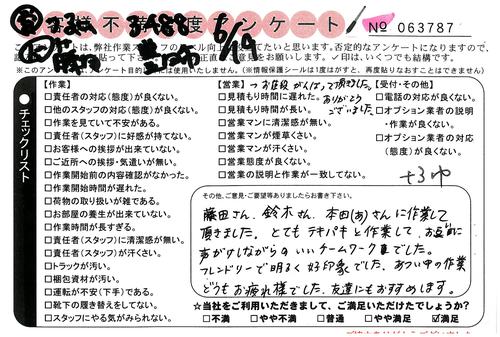 お客様不満度アンケート
3488
6/19
№ 063787
このアンケートは、弊社作業スタッフの
向上
たいと思います。否定的なアンケートになりますので、
正直
意見をお願いします。✓印は、いくつでも結構です。
(※このアンケート
目的には使用致しません。)(※情報保護シールは1度はがすと、再度貼りなおすことはできません)
チェックリスト
【作業】
□責任者の対応(態度)が良くない。
□他のスタッフの対応(態度)が良くない。
□作業を見ていて不安がある。
□責任者(スタッフ)に好感が持てない。
□お客様への挨拶が出来ていない。
□ご近所への挨拶・気遣いが無い。
□作業開始前の内容確認がなかった。
□作業開始時間が遅れた。
□荷物の取り扱いが雑である。
□お部屋の養生が出来ていない。
□作業時間が長すぎる。
□責任者(スタッフ)に清潔感が無い。
□責任者(スタッフ)が汗くさい。
□トラックが汚い。
□梱包資材が汚い。
□運転が不安(下手)である。
□靴下の履き替えをしてない。
□スタッフにやる気がみられない。
【営業】
お値段がんばって頂きました。
ありがとう
ございました
□見積もり時間に遅れた。
□見積もり時間が長い。
□営業マンに清潔感が無い。
□営業マンが煙草くさい。
□営業マンが汗くさい。
□営業態度が良くない。
□営業の説明と作業が一致してない。
【受付・その他】
□電話の対応が良くない。
□オプション業者の説明
・作業が良くない。
□オプション業者の対応
(態度)が良くない。
その他、ご意見・ご要望等ありましたらお書き下さい。
藤田さん、鈴木さん、本田(あ)さんに作業して
頂きました。とてもテキパキと作業して、お互いに
声がけしながらのいいチームワークでした。
フレンドリーで明るく好印象でした。あつい中の作業
どうもお疲れ様でした。友達にもおすすめします。
☆当社をご利用いただきまして、ご満足いただけたでしょうか?
□不満 □やや不満 □普通 □やや満足 ☑満足